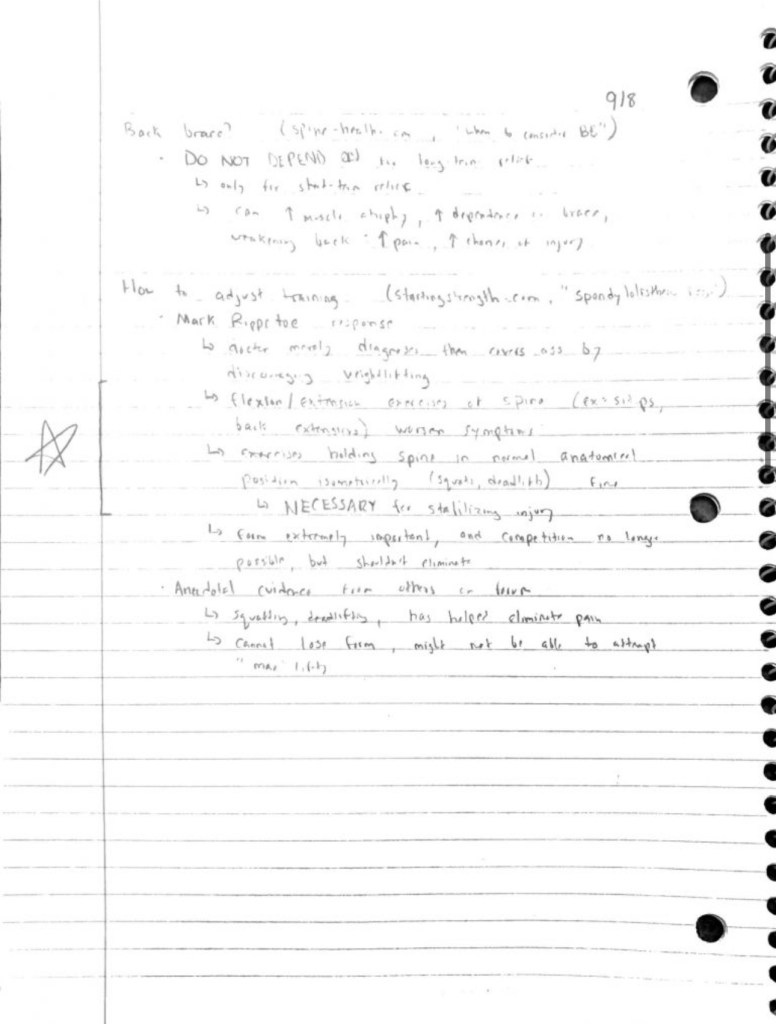 9/8
Back brace? (spine-health.com, "When to consider BE")
· DO NOT DEPEND for long term relief
↳ only for short-term relief
↳ can ↑ muscle atrophy, ↑ dependence on brace,
weakening back ↑ pain, ↑ chances of injury
How to adjust training (startingstrength.com, "spondylolisthesis
· Mark Rippetoe response
↳ doctor merely diagnoses then covers ass by
discouraging weightlifting
↳ flexion/extension exercises of spine (ex: situps,
back extensions) worsen symptoms
↳ exercises holding spine in normal anatomical
position isometrically (squats, deadlifts) fine
↳ NECESSARY for stabilizing injury
↳ form extremely important, and competition no longer
possible, but shouldn't eliminate
· Anecdotal evidence from others on forum
↳ squatting, deadlifting, has helped eliminate pain
↳ cannot lose form, might not be able to attempt
"max lifts